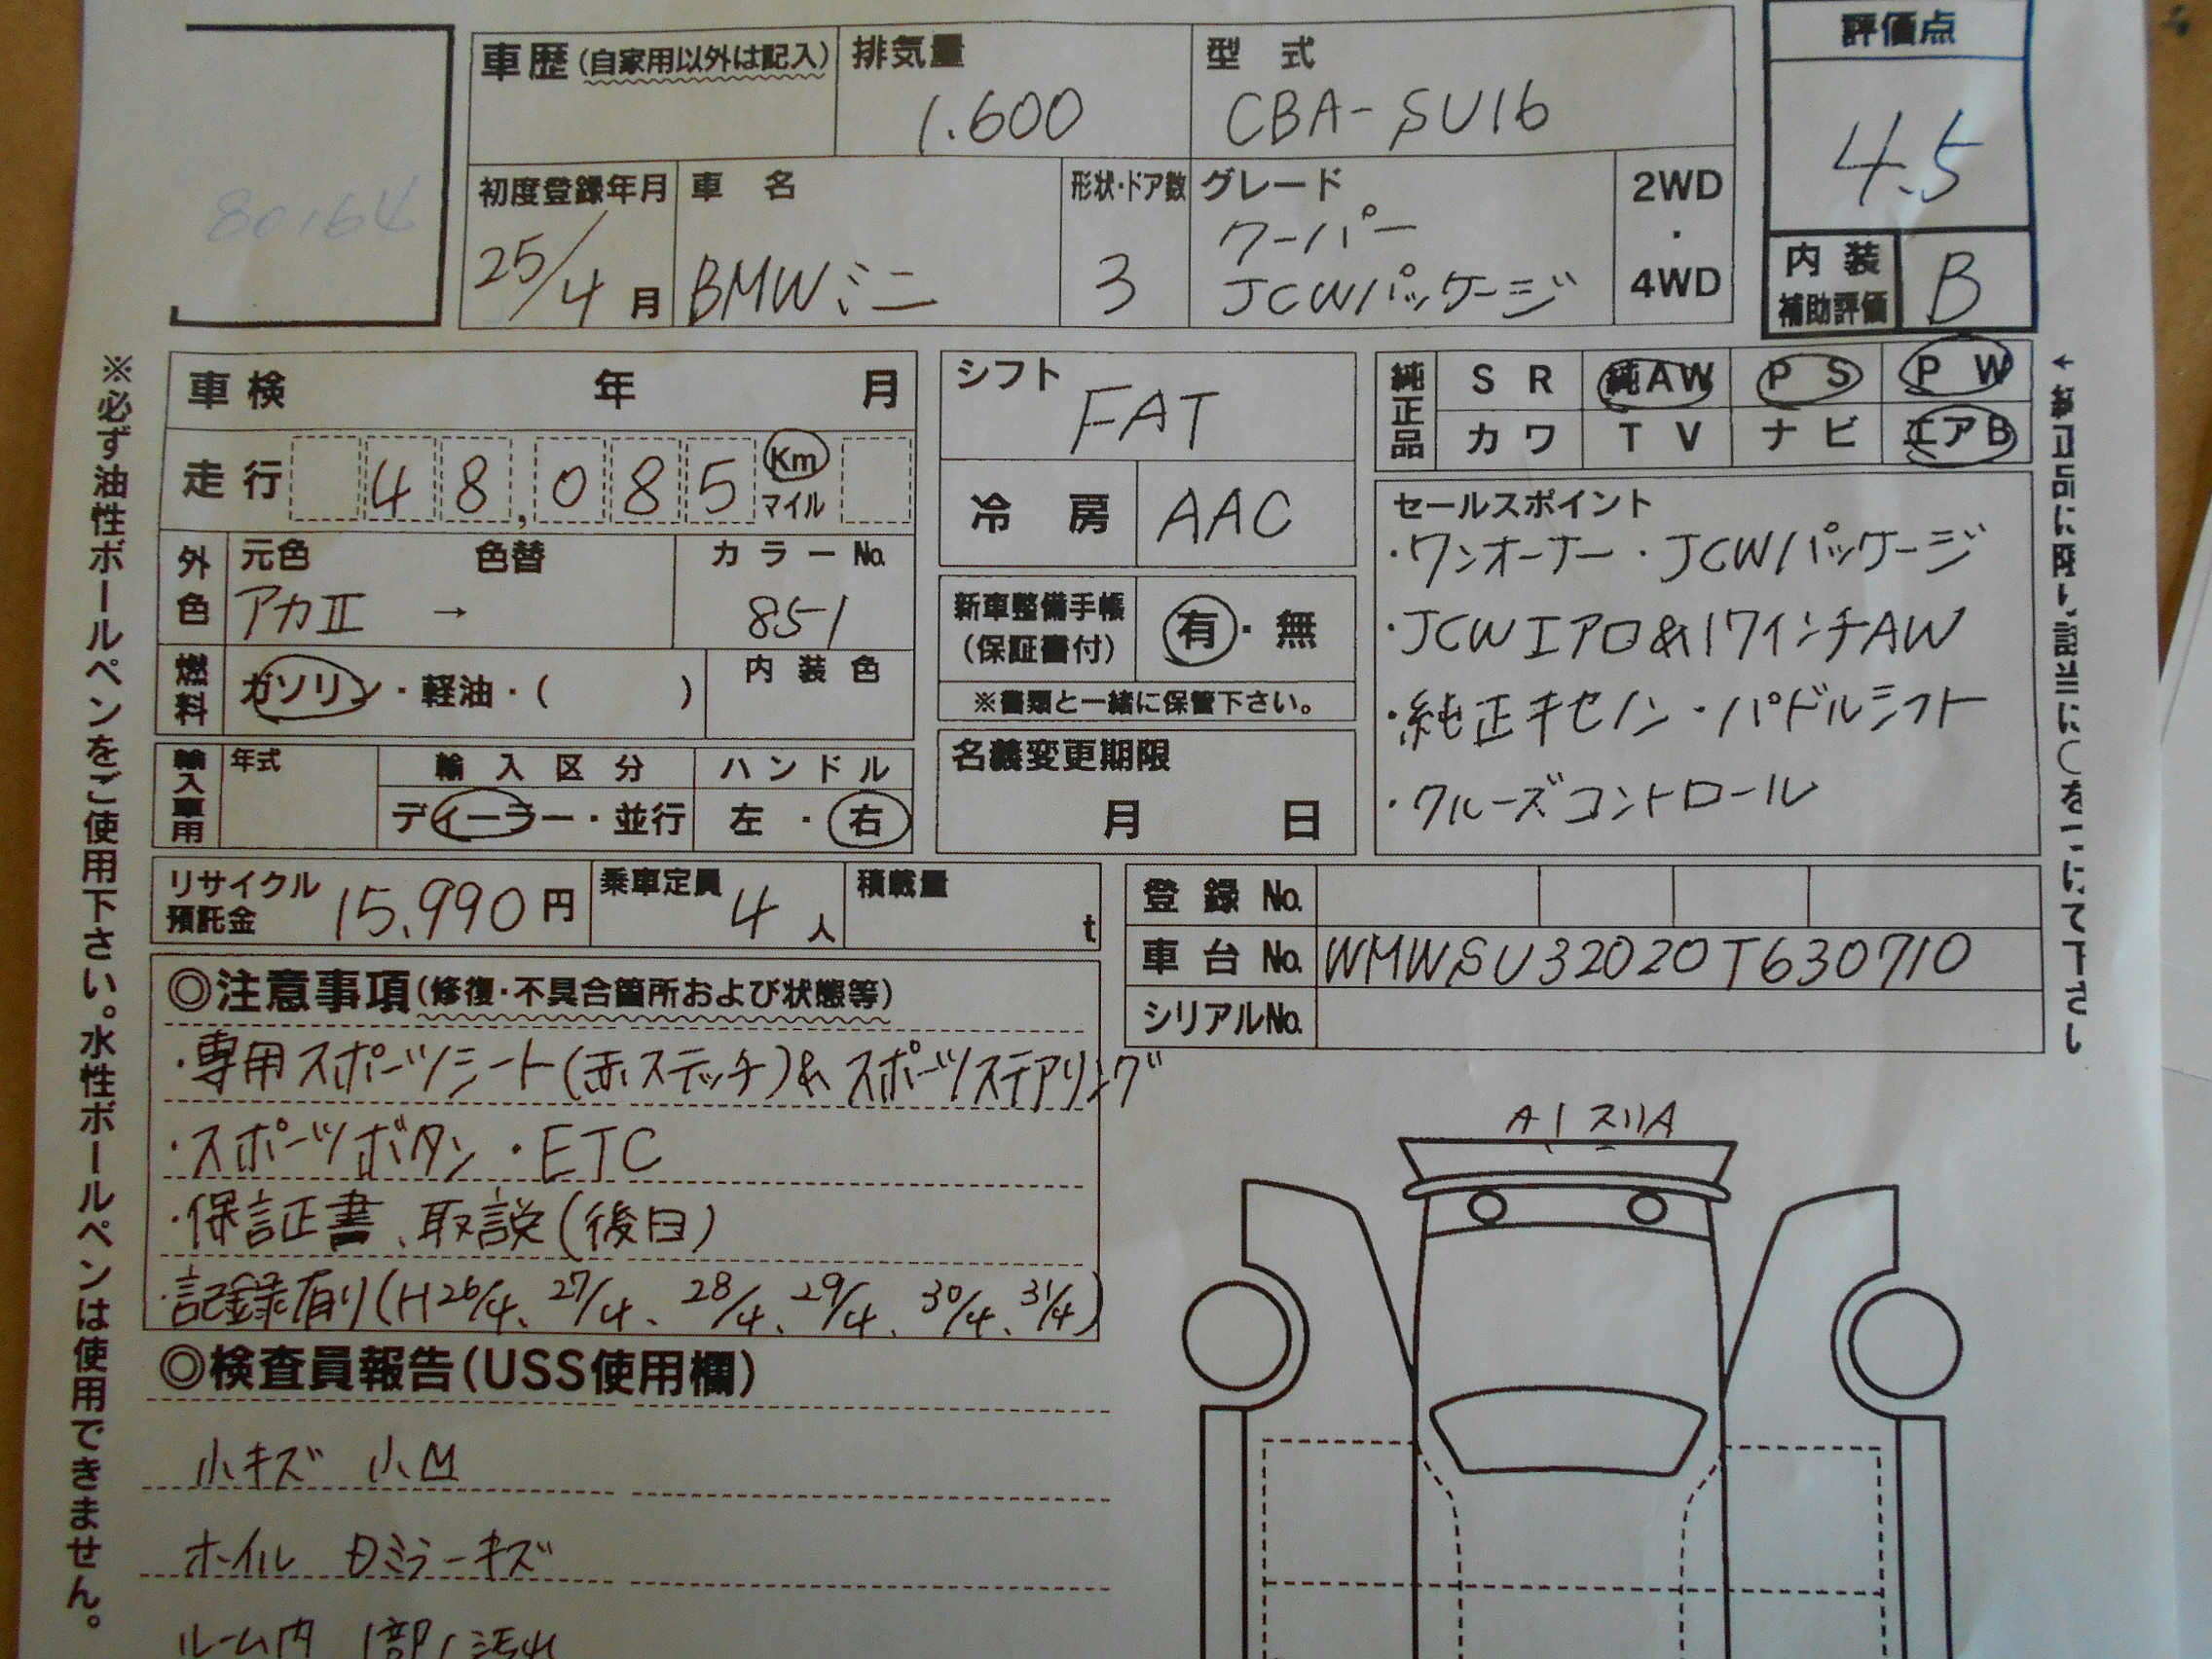 80164
車歴(自家用以外は記入) 排気量 型式 評価点
1.600 CBA-SU16 4.5
初度登録年月 車名 形状・ドア数 グレード 2WD・4WD
25/4月 BMWミニ 3 クーパー
JCWパッケージ
内装補助評価 B
車検 年 月
シフト FAT
純正品 SR 純AW PS PW
カワ TV ナビ エアB
走行 48,085 Km マイル
冷房 AAC
外色 元色 色替 カラーNo.
アカII → 851
燃料 ガソリン・軽油・( ) 内装色
新車整備手帳(保証書付) 有・無
※書類と一緒に保管下さい。
輸入車用 年式 輸入区分 ハンドル
ディーラー・並行 左・右
名義変更期限
月 日
セールスポイント
・ワンオーナー・JCWパッケージ
・JCWエアロ&17インチAW
・純正キセノン・パドルシフト
・クルーズコントロール
リサイクル預託金 15.990円 乗車定員 4人 積載量 t
登録No.
車台No. WMWSU32020T630710
シリアルNo.
◎注意事項(修復・不具合箇所および状態等)
・専用スポーツシート(赤ステッチ)&スポーツステアリング
・スポーツボタン・ETC
・保証書、取説(後日)
・記録有り(H26/4、27/4、28/4、29/4、30/4、31/4)
A1 スリA
◎検査員報告(USS使用欄)
小キズ 小M
ホイル ミラーキズ
ルーム内 1部 汚れ
※必ず油性ボールペンをご使用下さい。水性ボールペンは使用できません。